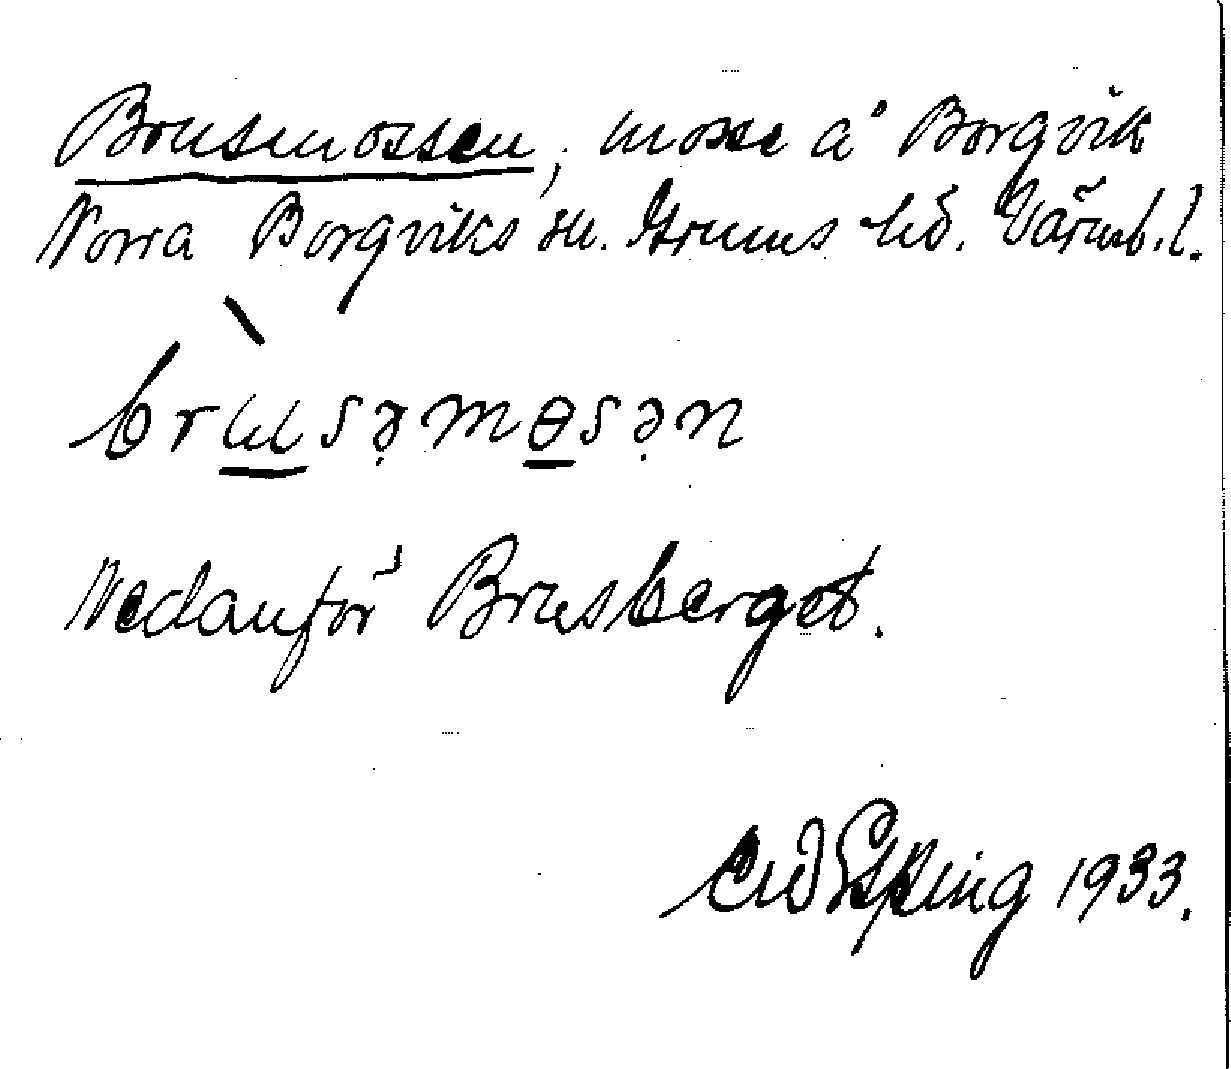 Brusemossen, mosse å Borgvik
Norra Borgviks sn. Grums hd. Värml. l.
brʉsəmɵsən
Nedanför Brusberget.
1933.